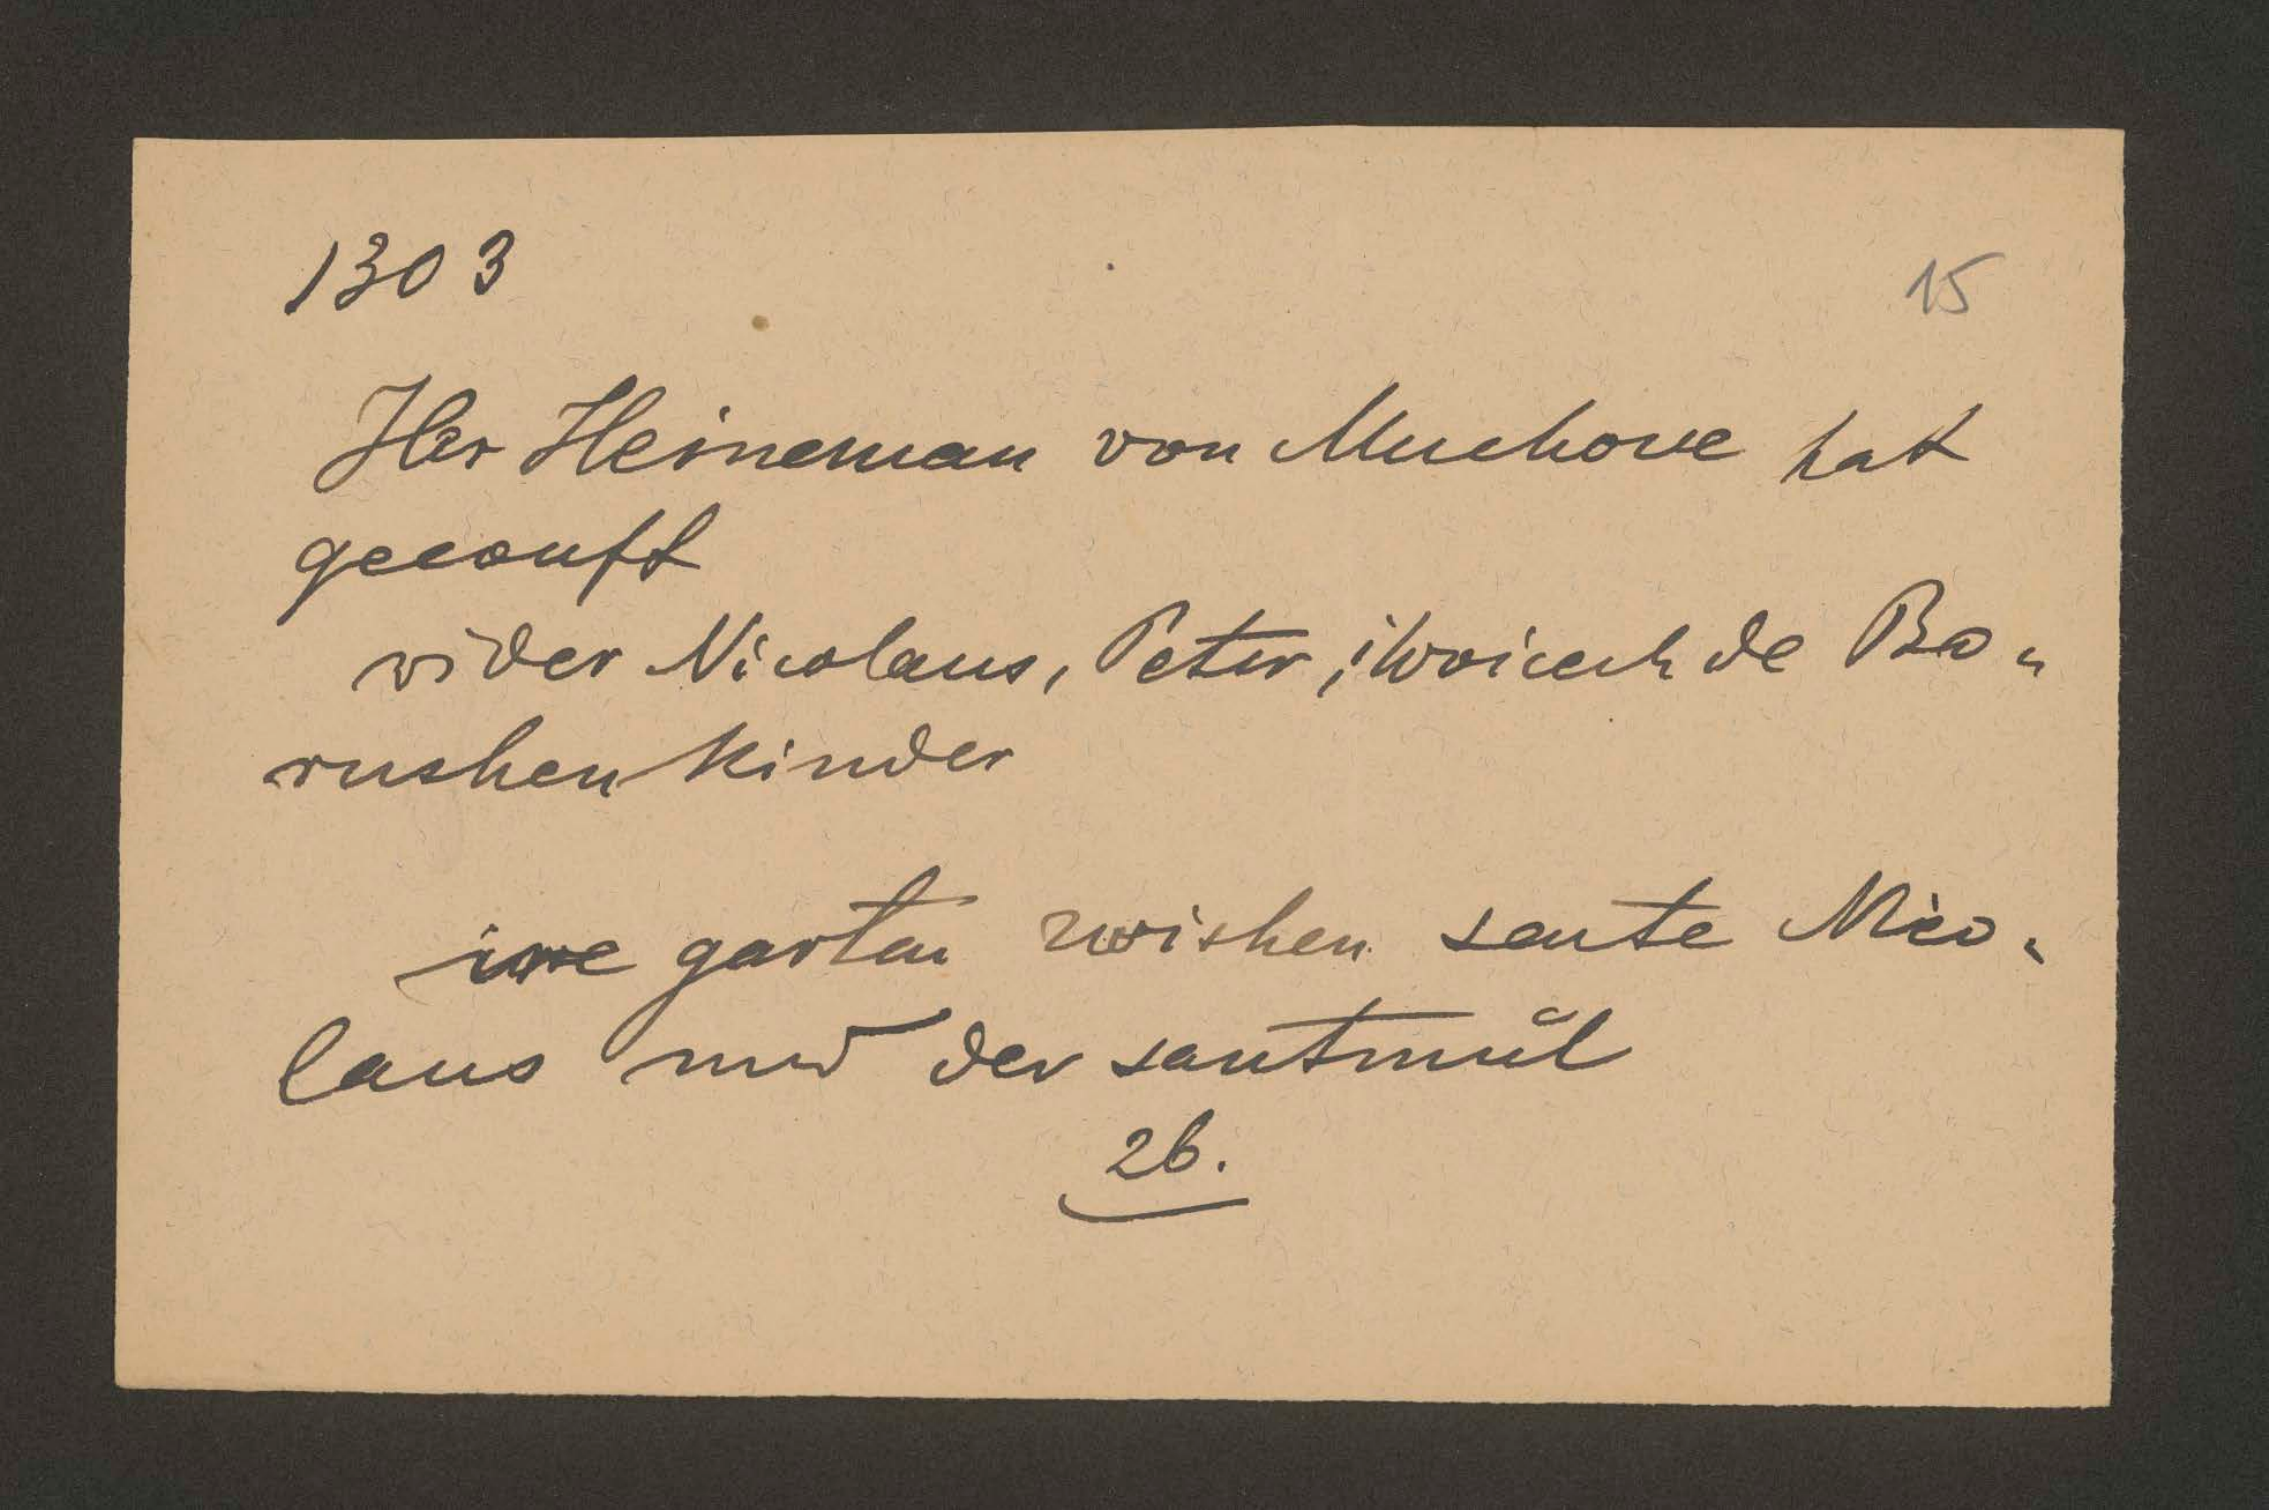 1303
15
Her Heineman von Muchove hat
gecouft
wider Nicolaus, Peter, i Woicech de Bo-
rushen kinder
ire garten zwishen sente Nico-
laus und der santmůl
26.